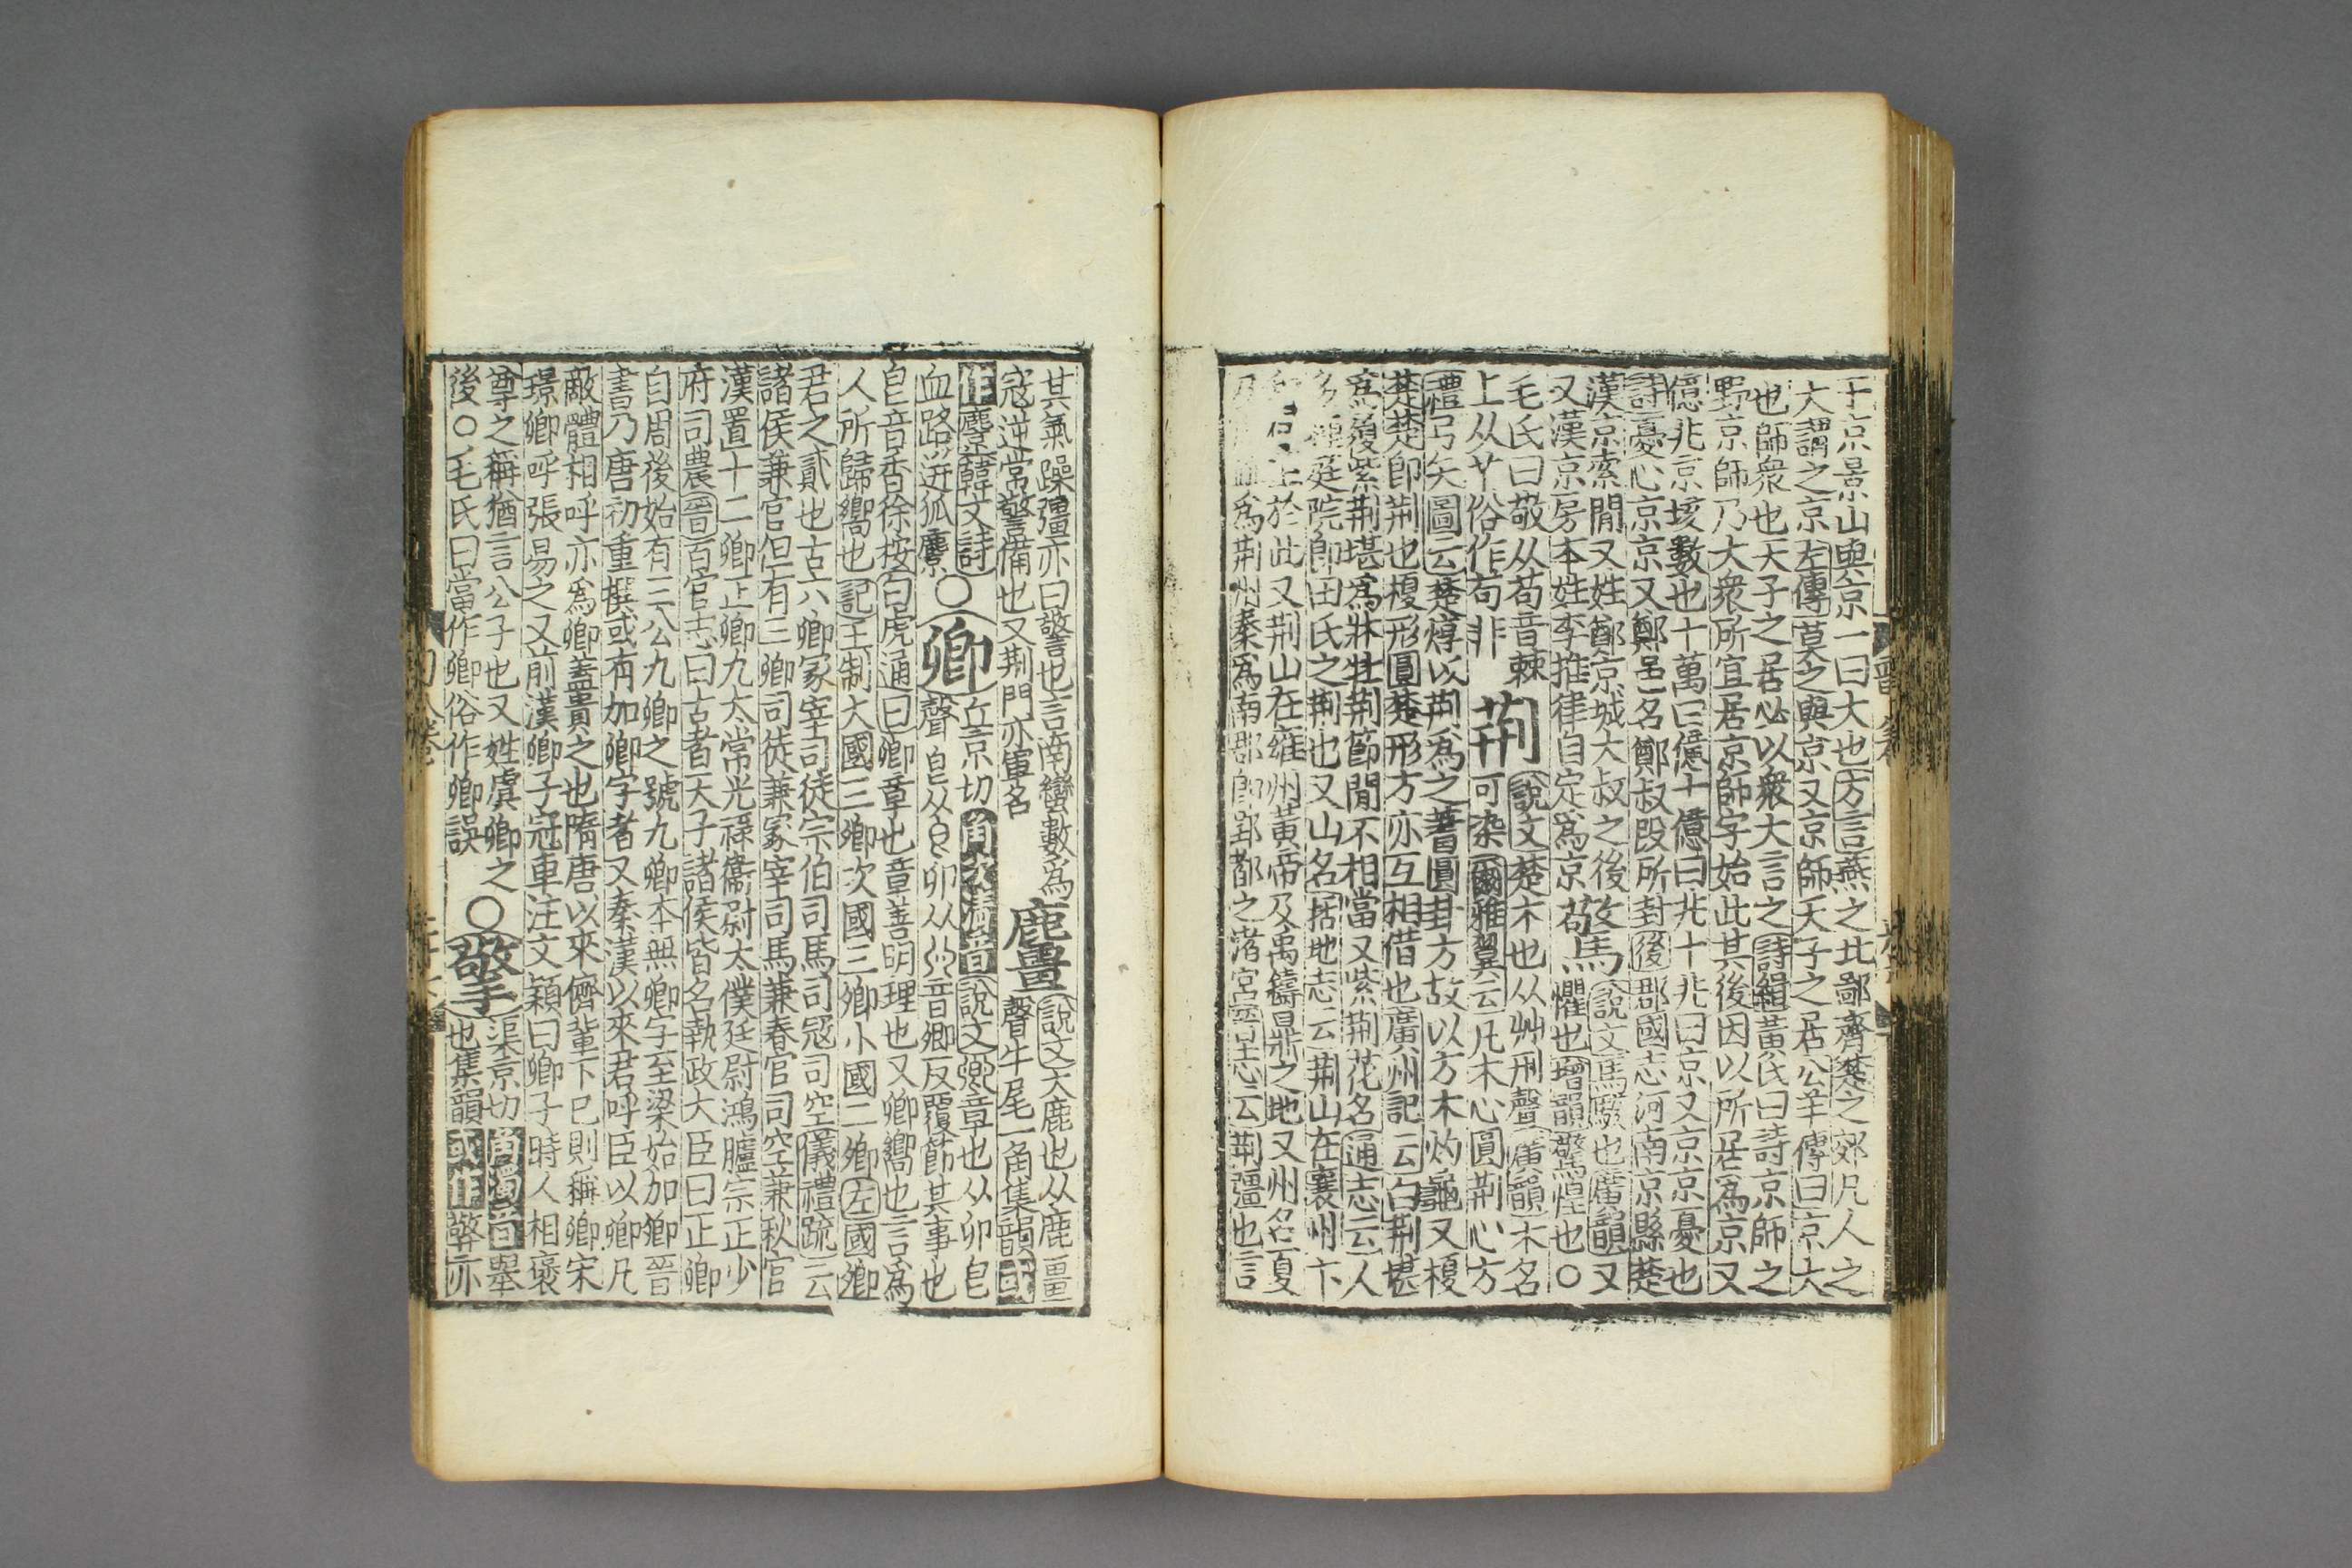 于京景山與京一曰大也方言燕之北鄙齊楚之郊凡人之
大謂之京左傳莫之與京又京師天子之居公羊傳曰京大
也師衆也天子之居必以衆大言之詩緝黃氏曰詩京師之
野京師乃大衆所宜居京師字始此其後因以所居爲京又
億兆京垓數也十萬曰億十億曰兆十兆曰京又京京憂也
詩憂心京京又鄭邑名鄭叔段所封後郡國志河南京縣楚
漢京索閒又姓鄭京城大叔之後
又漢京房本姓李推律自定爲京
驚
說文馬駭也廣韻又
懼也增韻驚惶也○
毛氏曰敬从苟音棘
上从艹俗作苟非
荆
說文楚木也从艸刑聲廣韻木名
可染爾雅翼云凡木心圓荆心方
禮弓矢圖云楚焞以荆爲之蓍圓卦方故以方木灼龜又榎
楚楚卽荆也榎形圓楚形方亦互相借也廣州記云白荆堪
爲履紫荆堪爲牀牡荆節閒不相當又紫荆花名通志云人
多種庭院卽田氏之荆也又山名括地志云荆山在襄州卞
於此又荆山在雍州黃帝及禹鑄鼎之地又州名夏
爲荆州秦爲南郡卽郢都之渚宮晉志云荆彊也言
其氣躁彊亦曰警也言南蠻數爲
寇逆常警備也又荆門亦軍名
麠
說文大鹿也从鹿畺
聲牛尾一角集韻或
作麖韓文詩
血路迸狐麖○
卿
丘京切角次清音說文卿章也从卯皀
聲皀从卯从音卿反覆節其事也
皀音香徐按白虎通曰卿章也章善明理也又卿嚮也言爲
人所歸嚮也記王制大國三卿次國三卿小國二卿左國卿
君之貳也古六卿冢宰司徒宗伯司馬司寇司空儀禮疏云
諸侯兼官但有三卿司徒兼冢宰司馬兼春官司空兼秋官
漢置十二卿正卿九太常光祿衞尉太僕廷尉鴻臚宗正少
府司農晉百官志曰古者天子諸侯皆名執政大臣曰正卿
自周後始有三公九卿之號九卿本無卿字至梁始加卿晉
書乃唐初重撰或有加卿字者又秦漢以來君呼臣以卿凡
敵體相呼亦爲卿蓋貴之也隋唐以來儕輩下已則稱卿宋
璟卿呼張易之又前漢卿子冠軍注文穎曰卿子時人相褒
尊之稱猶言公子也又姓虞卿之
後○毛氏曰當作卿俗作卿誤
○
擎
渠京切角濁音舉
也集韻或作擏亦